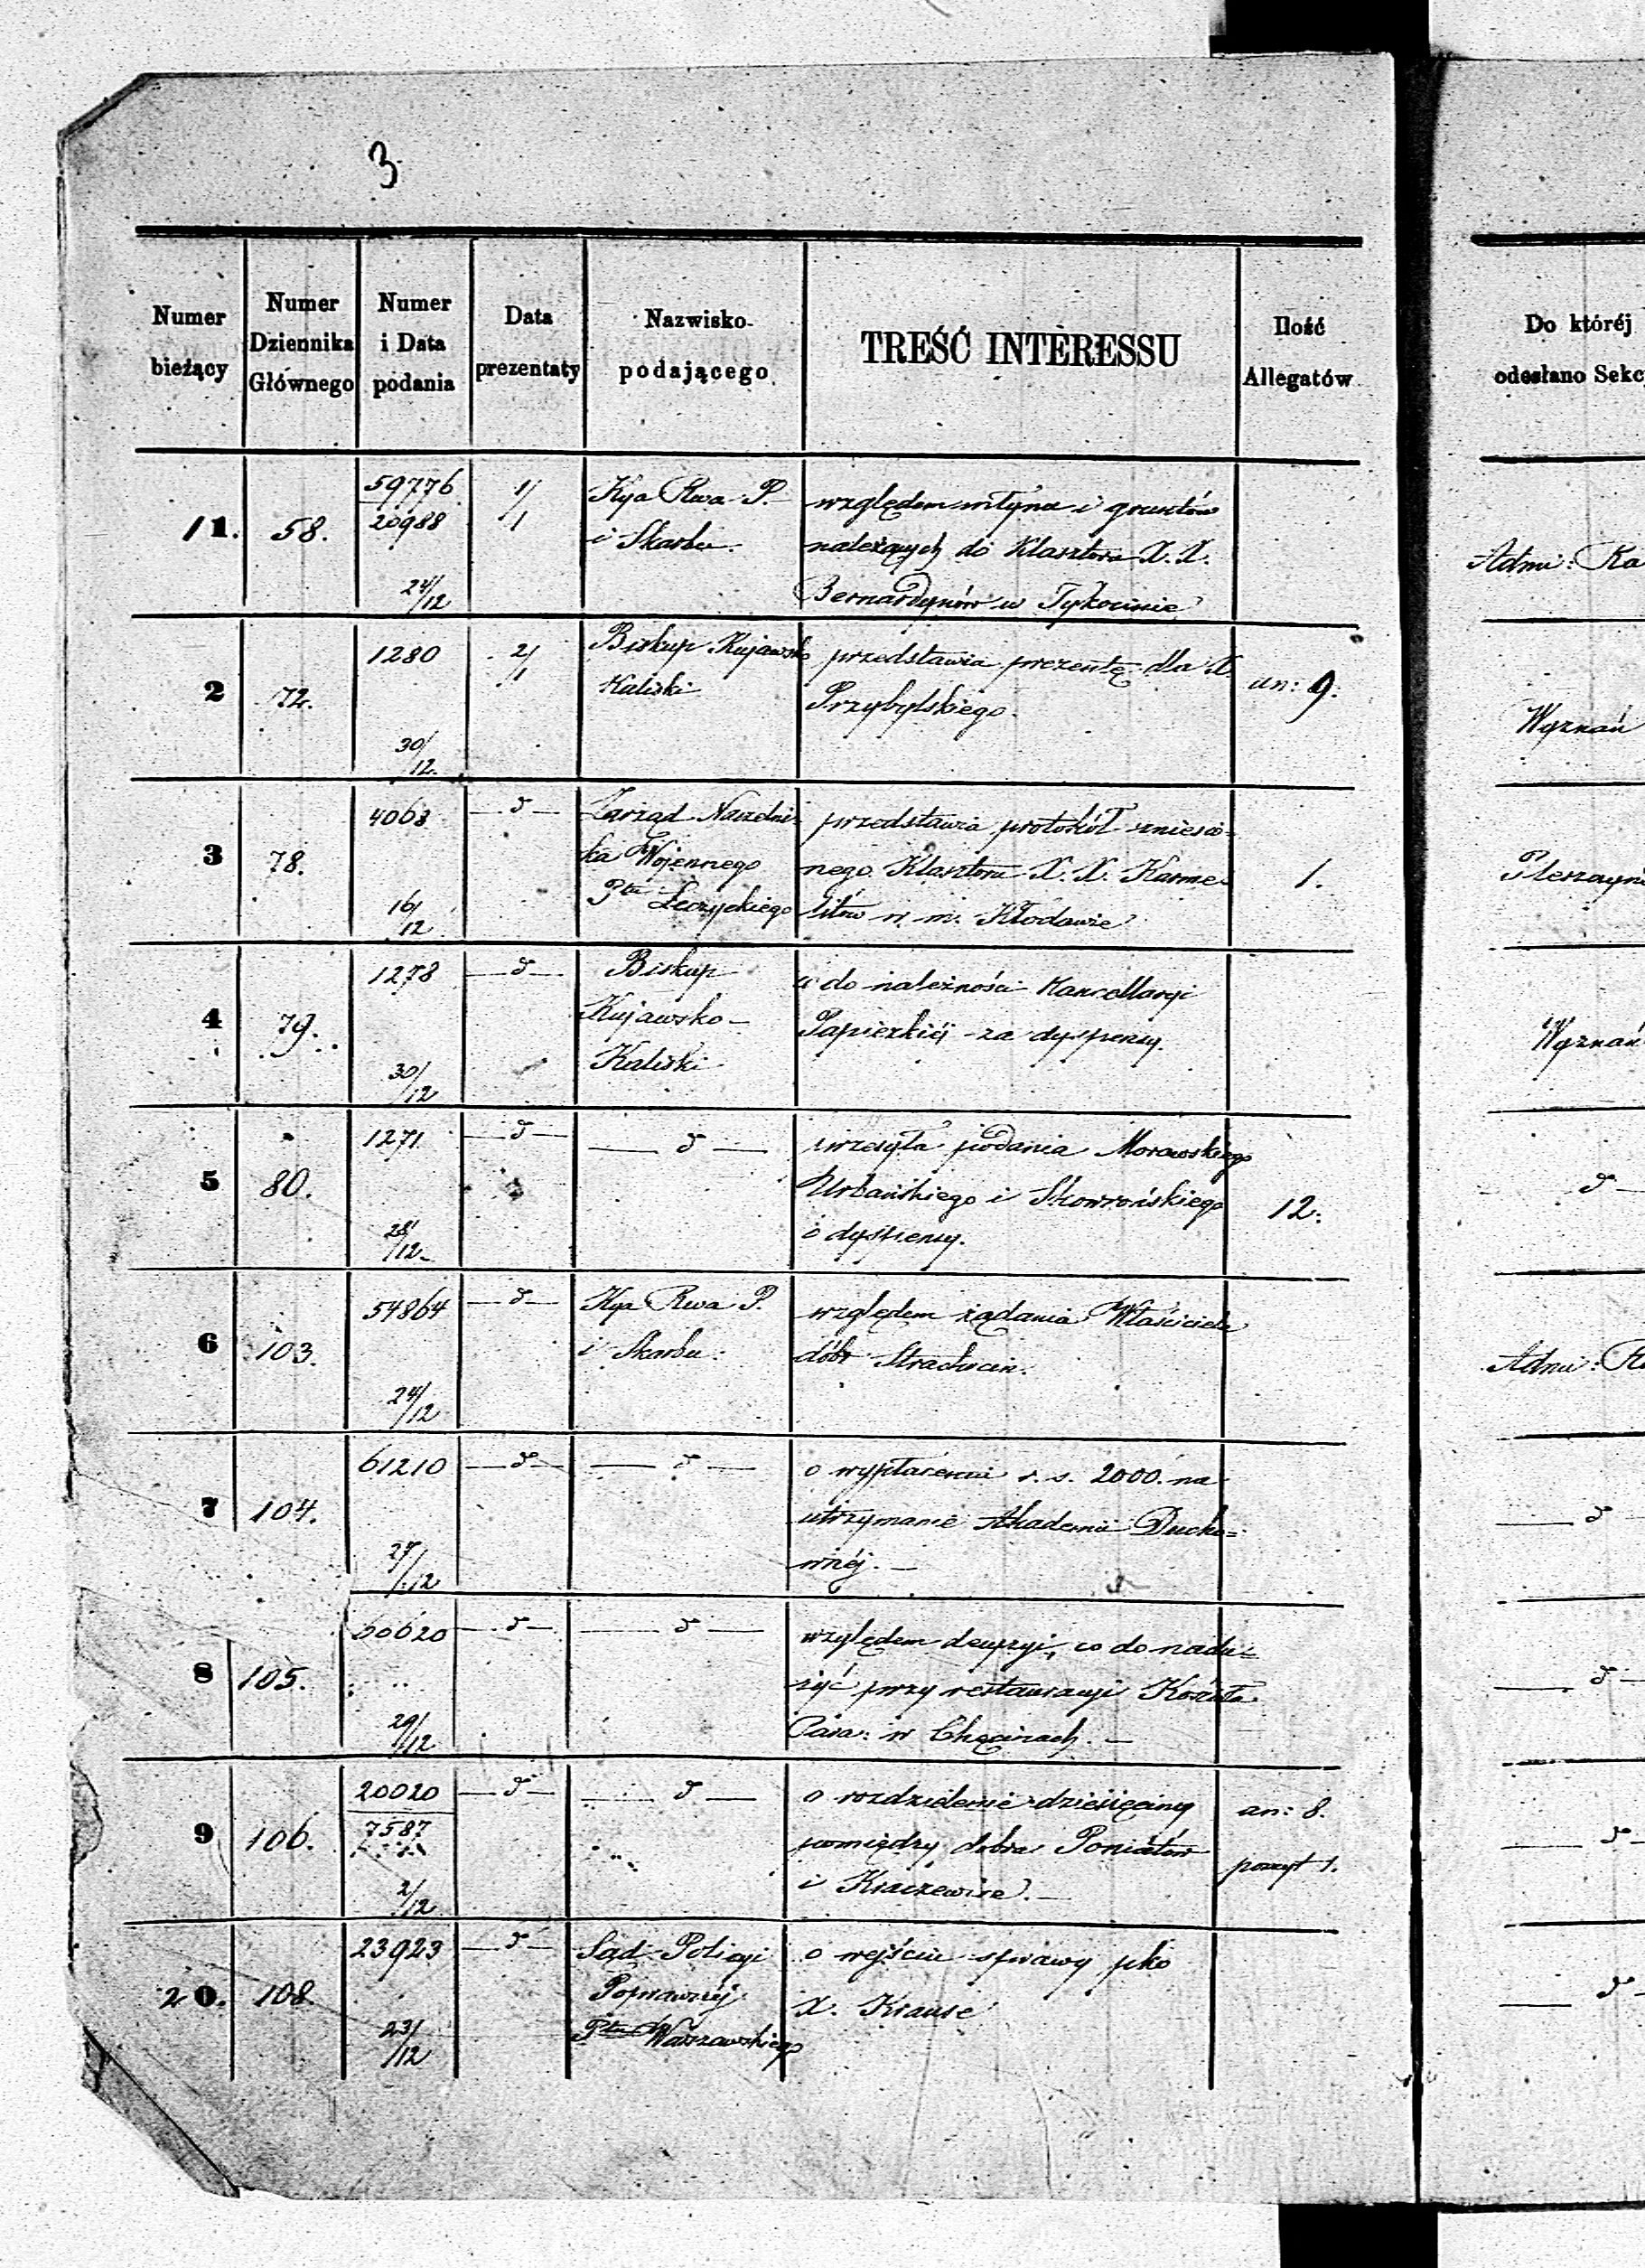 3
Numer bieżący
Numer Dziennika Głównego
Numer i Data podania
Data prezentaty
Nazwisko podającego
TREŚĆ INTERESSU
Ilość Allegatów
Do któréj odesłano Sekc
11. 58. 59776 20988 24/12 1/1
Kya Rwa P.
i Skarbu.
względem młyna i gruntów
należących do Klasztoru X. X.
Bernardynów w Tykocinie
Admi: Ka
2 72. 1280 30/12 2/1
Biskup Kujawsko
Kaliski
przedstawia prezentę dla X.
Przybylskiego.
an: 9.
Wyznań
3 78. 4063 16/12 —d—
Zarząd Naczelni-
ka Wojennego
Ptu Łęczyckiego
przedstawia protokół zniesio-
nego Klasztoru X. X. Karme-
litów w m. Kłodawie
1.
4 79. 1278 30/12 —d—
Biskup
Kujawsko-
Kaliski
co do należności Kancellaryi
Papiezkiéj za dyspensy.
Wyznań
5 80. 1271. 28/12 —d— —d—
przesyła podania Morawskiego
Urbańskiego i Skowrońskiego
o dyspensy.
12.
d
6 103. 54864 24/12 —d—
Kya Rwa P.
i Skarbu.
względem żądania Właściciela
dóbr Strachocin.
Admi:
7 104. 61210 27/12 —d— —d—
o wypłacenie r. s. 2000. na
utrzymanie Akademii Ducho=
wnéj. —
— d
8 105. 60620 29/12 —d— —d—
względem decyzyi, co do nadu=
żyć przy restauracyi Kościoła
Para: w Chęcinach. —
— d —
9 106. 20020 7587 2/12 —d— —d—
o rozdzielenie dziesięciny
pomiędzy dobra Poniatów
i
an: 8.
poszyt 1.
— d —
20. 108. 23923 23/12 —d—
Sąd Policyi
Poprawczéj
Ptu Warszawskiego
o wejściu sprawy pko
X. Krause
— d —